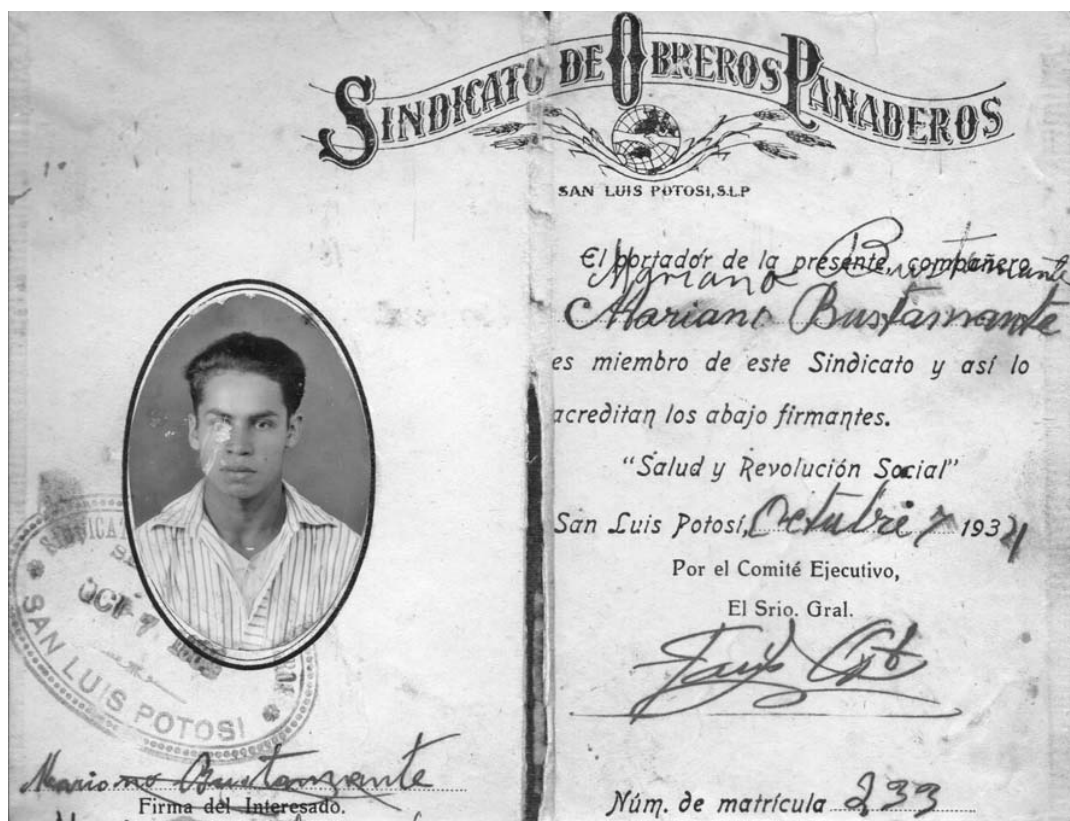 SINDICATO DE OBREROS PANADEROS
SAN LUIS POTOSI, S.L.P
El portador de la presente, compañero
Mariano Bustamante
Mariano Bustamante
es miembro de este Sindicato y así lo
acreditan los abajo firmantes.
"Salud y Revolución Social"
San Luis Potosí, Octubre 7 1934
Por el Comité Ejecutivo,
El Srio. Gral.
Núm. de matrícula 233
SINDICAT
OCT 7
SAN LUIS POTOSI
Mariano Bustamante
Firma del Interesado.